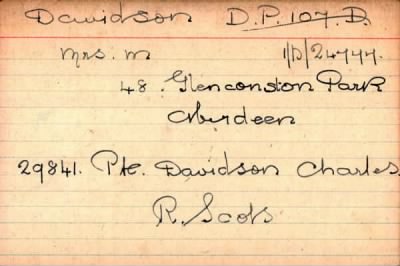 Davidson D.P. 107. D.
Mrs. M 1/D/24777.
48. Glenconston Park
Aberdeen
29841. Pte. Davidson Charles.
R. Scots